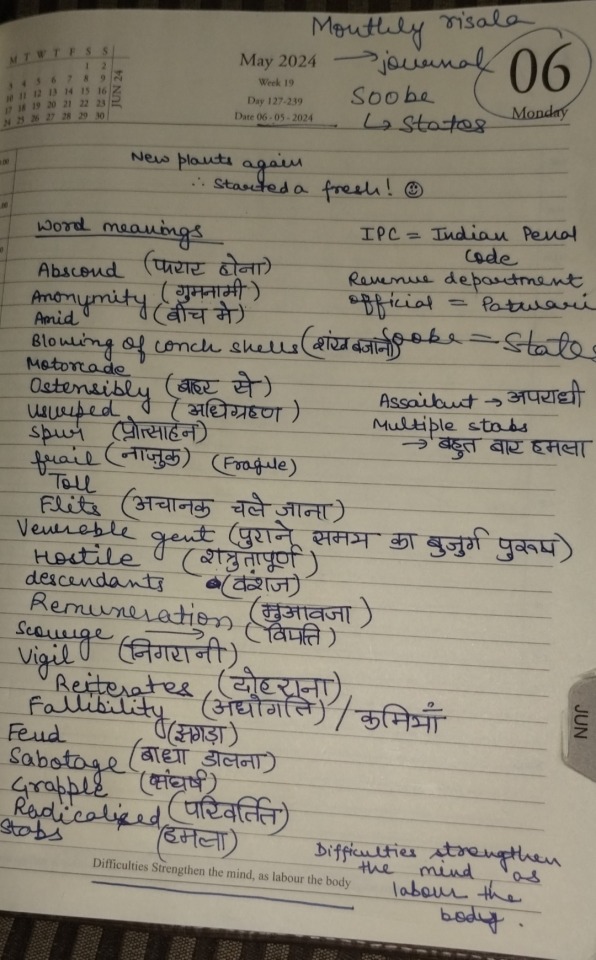 Monthly risala
→ journal
Soobe
↳ States
M T W T F S S
1 2
3 4 5 6 7 8 9
10 11 12 13 14 15 16
17 18 19 20 21 22 23
24 25 26 27 28 29 30
JUN 24
May 2024
Week 19
Day 127-239
Date 06-05-2024
06
Monday
New plants again
∴ Started a fresh! ☺
Word meanings
Abscond (फरार होना)
Anonymity (गुमनामी)
Amid (बीच मे)
Blowing of conch shells (शंख बजाना)
Motorcade
Ostensibly (बाहर से)
usurped (अधिग्रहण)
spur (प्रोत्साहन)
frail (नाजुक) (Fragile)
Toll
Flits (अचानक चले जाना)
Venerable gent (पुराने समय का बुजुर्ग पुरूष)
Hostile (शत्रुतापूर्ण)
descendants (वंशज)
Remuneration (मुआवजा)
Scourge → (विपति)
Vigil (निगरानी)
Reiterates (दोहराना)
Fallibility (अधोगति) / कमियाँ
Feud (झगड़ा)
Sabotage (बाधा डालना)
Grapple (संघर्ष)
Radicalised (परिवर्तित)
Stabs (हमला)
IPC = Indian Penal
Code
Revenue department
official = Patwari
Soobe = States
Assailant → अपराधी
Multiple stabs
→ बहुत बार हमला
JUN
Difficulties Strengthen the mind, as labour the body
Difficulties strengthen
the mind, as
labour the
body.